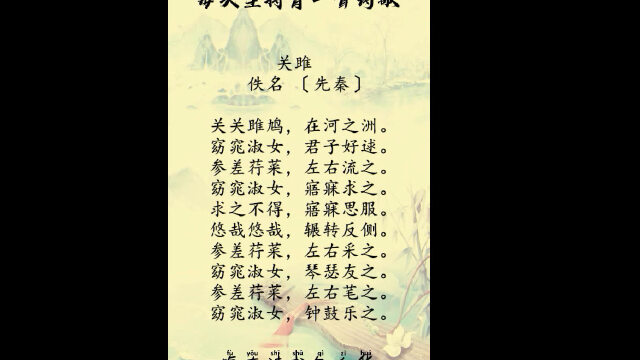 每天坚持背一首诗歌
关雎
佚名 〔先秦〕
关关雎鸠，在河之洲。
窈窕淑女，君子好逑。
参差荇菜，左右流之。
窈窕淑女，寤寐求之。
求之不得，寤寐思服。
悠哉悠哉，辗转反侧。
参差荇菜，左右采之。
窈窕淑女，琴瑟友之。
参差荇菜，左右芼之。
窈窕淑女，钟鼓乐之。
fù yǒu shī shū qì zì huá